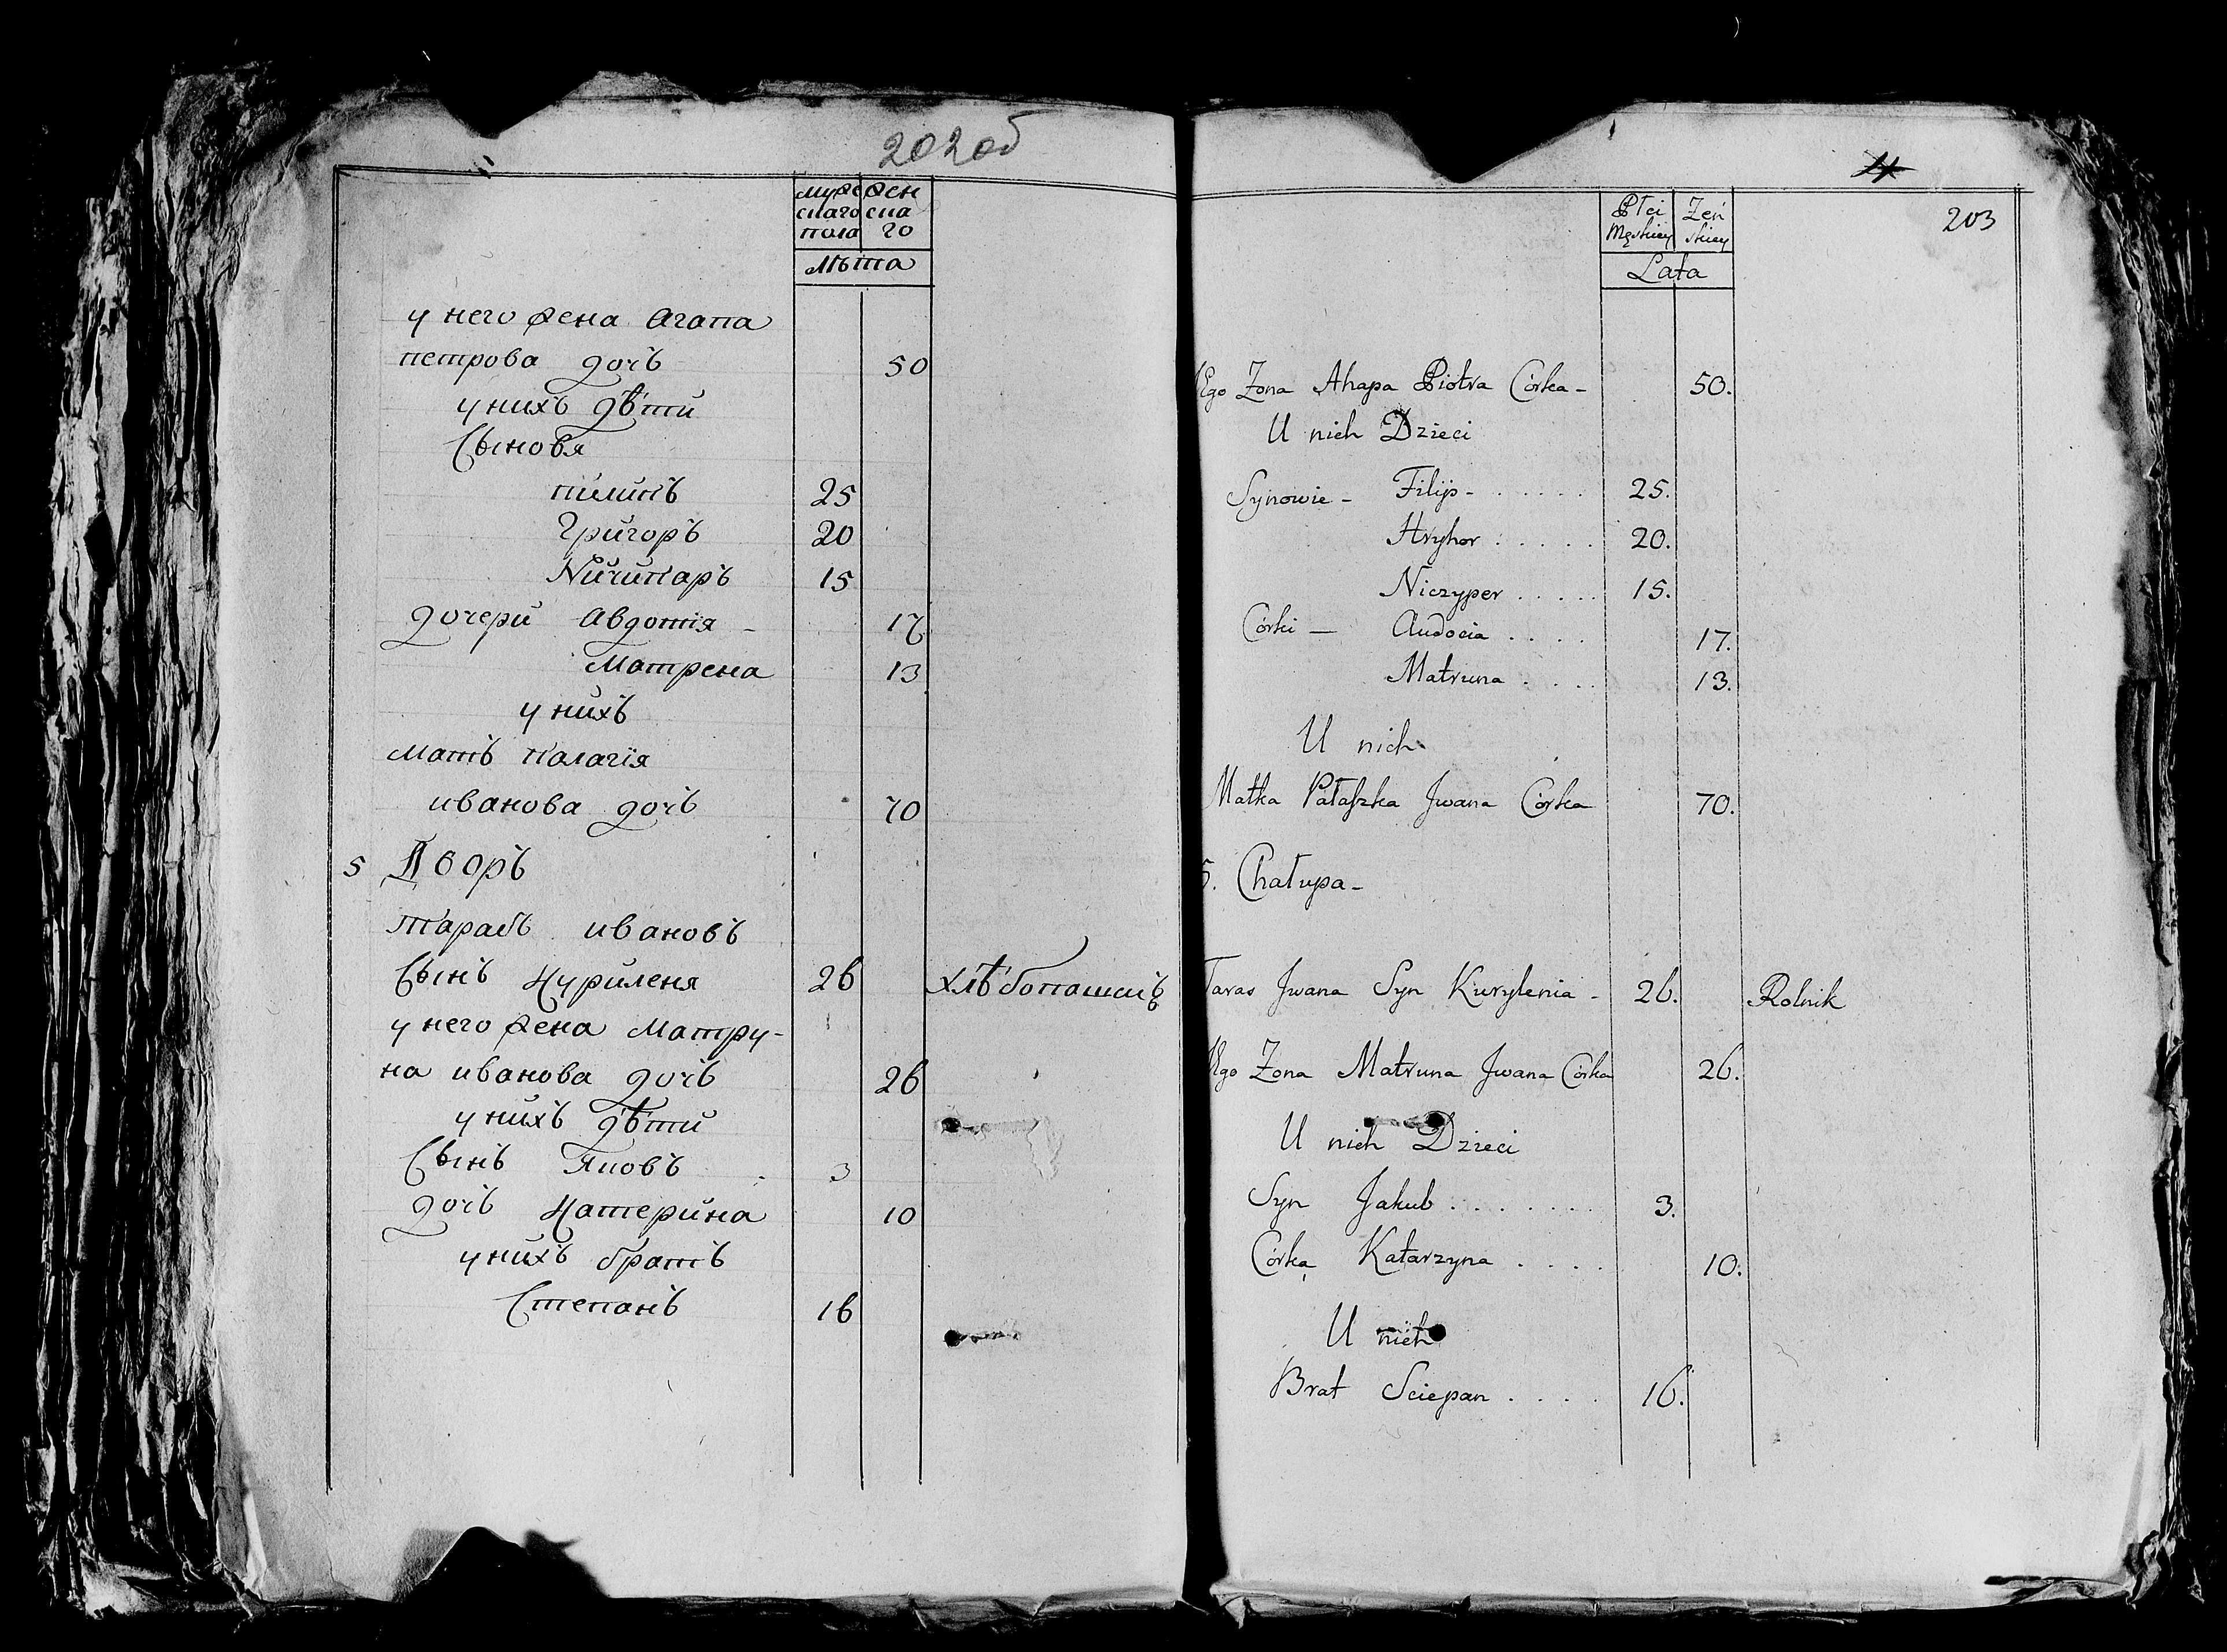 202об
мужескаго пола
женскаго
Лѣта
у него жена Агапа
петрова дочь 50
у нихъ дѣти
Сыновя
пилипъ 25
Григоръ 20
Ничипаръ 15
дочери Авдотія - 17
Матрена 13
у нихъ
мать палагія
иванова дочь 70
5 Дворъ
тарасъ ивановъ
Сынъ Куриленя 26 хлѣбопашецъ
у него жена Матру-
на иванова дочь 26
у нихъ дѣти
Сынъ Яковъ 3
дочь Катерина 10
у нихъ братъ
Степанъ 16
203
Płci Męskiey
Żeń skiey
Lata
Ego Zona Ahapa Piotra Córka - 50.
U nich Dzieci
Synowie - Filip - . . . . . 25.
Hryhor . . . . . 20.
Niczyper . . . . . 15.
Córki — Audocia . . . . 17.
Matruna . . . . 13.
U nich
Matka Pałaszka Jwana Córka 70.
5. Chałupa -
Taras Jwana Syn Kurylenia - 26. Rolnik
Ego Zona Matruna Jwana Córka 26.
U nich Dzieci
Syn Jakub . . . . . . . 3.
Córka Katarzyna . . . . 10.
U nich
Brat Sciepan . . . . 16.